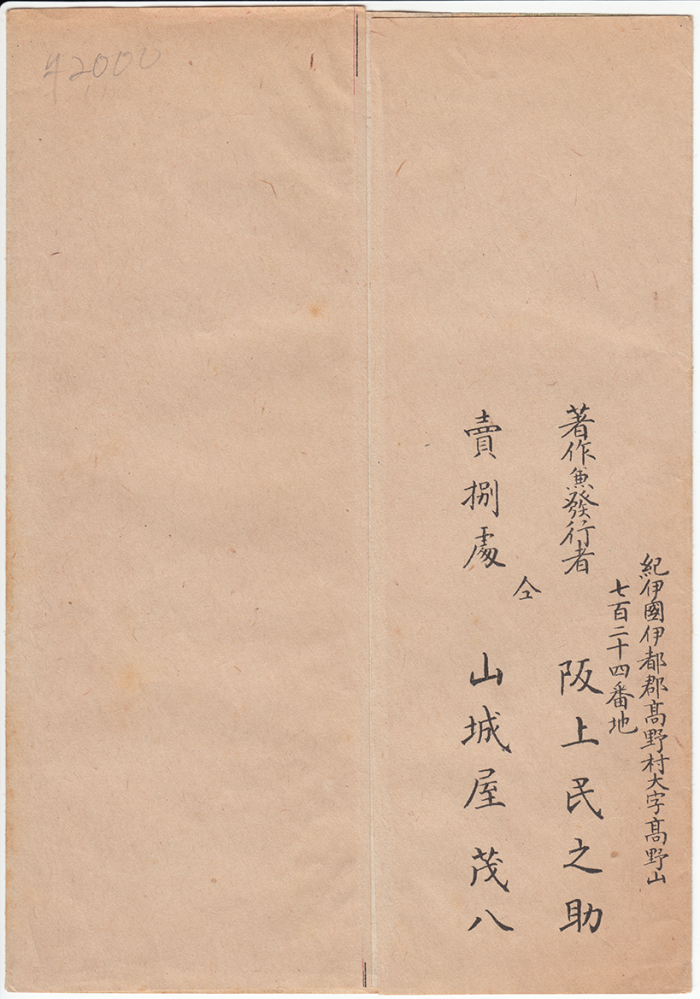 紀伊國伊都郡髙野村大字髙野山
七百二十四番地
著作兼發行者 阪上民之助
仝
賣捌處 山城屋茂八
¥2000